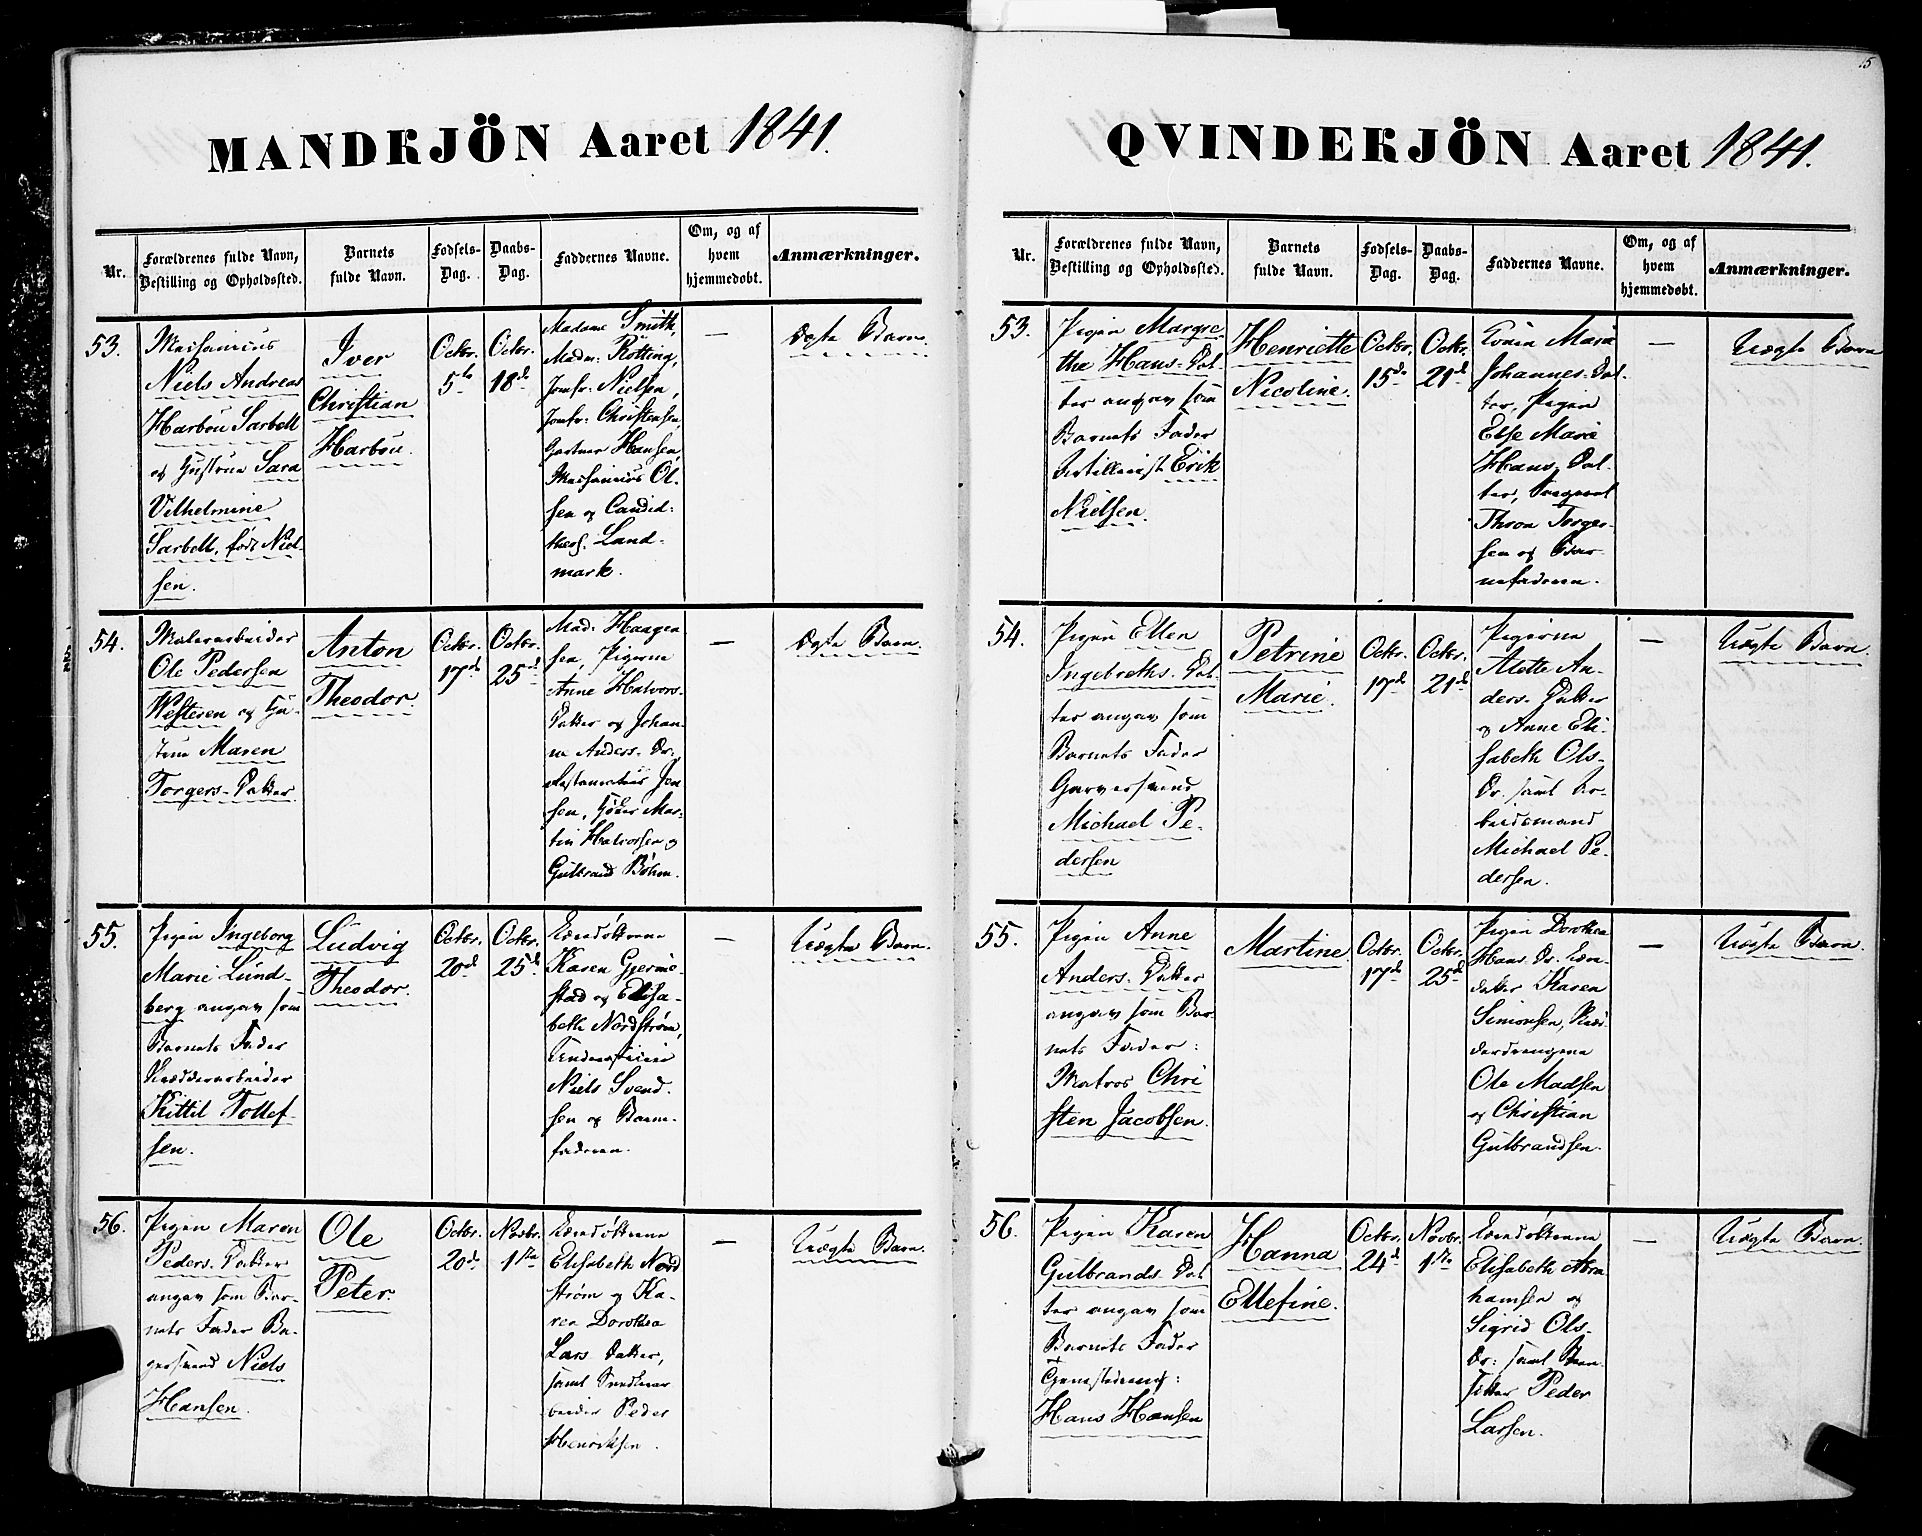 15
MANDKJÖN Aaret 1841.
Nr.
Forældrenes fulde Navn,
Bestilling og Opholdssted.
Barnets
fulde Navn.
Fødsels-
Dag.
Daabs-
Dag.
Faddernes Navne.
Om, og af
hvem
hjemmedøbt.
Anmærkninger.
53.
Niels Andreas
Harbou Sarbell
og Hustrue Sara
Vilhelmine
Sarbell, født Niel-
sen.
Iver
Christian
Harbou.
Octbr.
5te
Octbr.
18de
Madame Smith,
Madm: Rotting,
Jomfr: Nielsen,
Jomfr: Christensen,
Gartner Hansen,
Ol-
sen og Candid:
theol. Land-
mark.
—
Ægte Barn.
54.
Malerarbeider
Ole Pedersen
Westeren og Hu-
strue Maren
Torgers-Datter.
Anton
Theodor.
Octbr.
17de
Octbr.
25de
Mad: Haagen
sen, Pigerne
Anne Halvors-
Datter og Johan-
ne Anders-Dr:
Jen
sen, Mar-
tin Halvorsen og
Gulbrand Bøhm.
—
Ægte Barn.
55.
Pigen Ingeborg
Marie Lund-
berg angav som
Barnets Fader
Kittil Tollef-
sen.
Ludvig
Theodor.
Octbr.
20de
Octbr.
25de
Karen Gjermo-
stad og Elisa-
beth Nordstrøm,
Niels Svend-
sen og Barne-
faderen.
—
Uægte Barn.
56.
Pigen Maren
Peders-Datter
angav som Bar-
nets Fader Ba-
gersvend Niels
Hansen.
Ole
Peter.
Octbr.
20de
Novbr.
1ste
Elisabeth Nord
strøm og Ka-
ren Dorothea
Lars Datter,
samt
beider Peder
Henriksen.
—
Uægte Barn.
QVINDEKJÖN Aaret 1841.
Nr.
Forældrenes fulde Navn,
Bestilling og Opholdssted.
Barnets
fulde Navn.
Fødsels-
Dag.
Daabs-
Dag.
Faddernes Navne.
Om, og af
hvem
hjemmedøbt.
Anmærkninger.
53.
Pigen Margre
the Hans-Dat-
ter angav som
Barnets Fader
Artillerist Erik
Nielsen.
Henriette
Nicoline.
Octbr.
15de
Octbr.
21de
Marie
Johannes-Dat-
ter, Pigen
Else Marie
Hans-Dat-
ter,
Thron Torger-
sen og Bar-
nefaderen.
—
Uægte Barn
54.
Pigen Ellen
Ingebreths-Dat-
ter angav som
Barnets Fader
Garversvend
Michael Pe-
dersen
Petrine
Marie.
Octbr.
17de
Octbr.
21de
Pigerne
Alette An-
ders-Datter
og Anne Eli-
sabeth Ols-
Dr. samt Ar-
beidsmand
Michael Pe-
dersen.
—
Uægte Barn.
55.
Pigen Anne
Anders-Datter
angav som Bar-
nets Fader:
Matros Chri
sten Jacobsen.
Martine
Octbr.
17de
Octbr.
25de
Pigen Dorothea
Hans-Dr.
Karen
Simonsen,
Ole Madsen
og Christian
Gulbrandsen.
—
Uægte Barn.
56.
Pigen Karen
Gulbrands-Dat-
ter angav som
Barnets Fader
Hans Hansen
Hanna
Ellefine.
Octbr.
24de
Novbr.
1ste
Elisabeth Abra
hamsen og
Sigrid Ols-
Dr: samt
Peder
Larsen.
—
Uægte Barn.